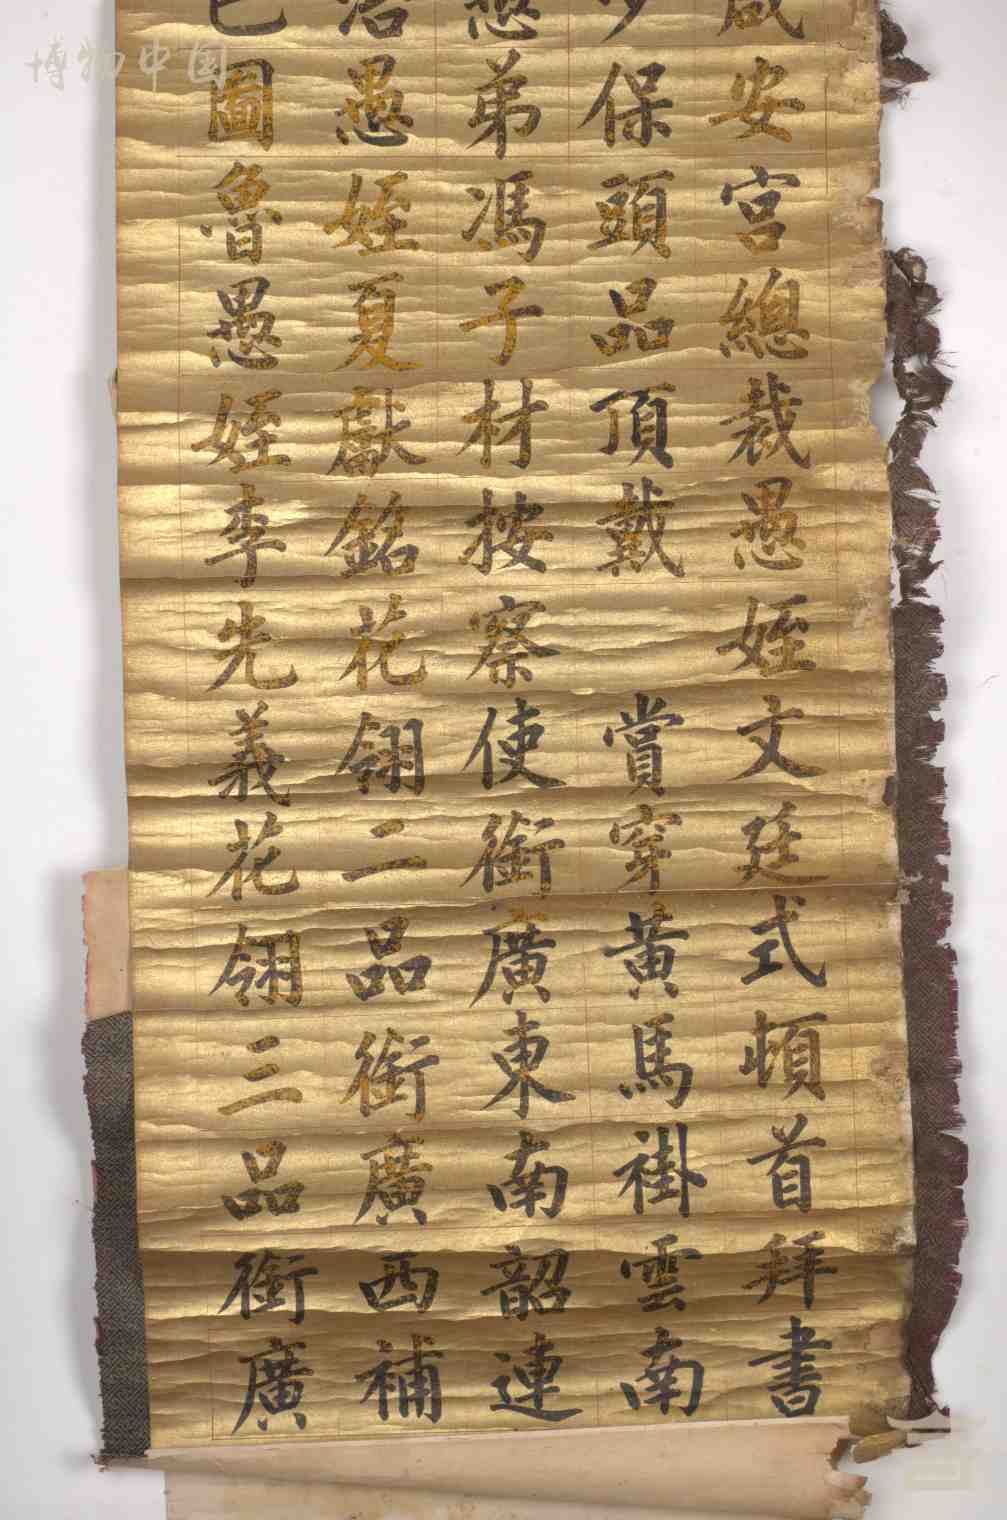 咸安宮總裁愚姪文廷式頓首拜書
少保頭品頂戴 賞穿黃馬褂雲南
愚弟馮子材按察使銜廣東南韶連
愚姪夏獻銘花翎二品銜廣西補
巴圖魯愚姪李先義花翎三品銜廣
博物中国